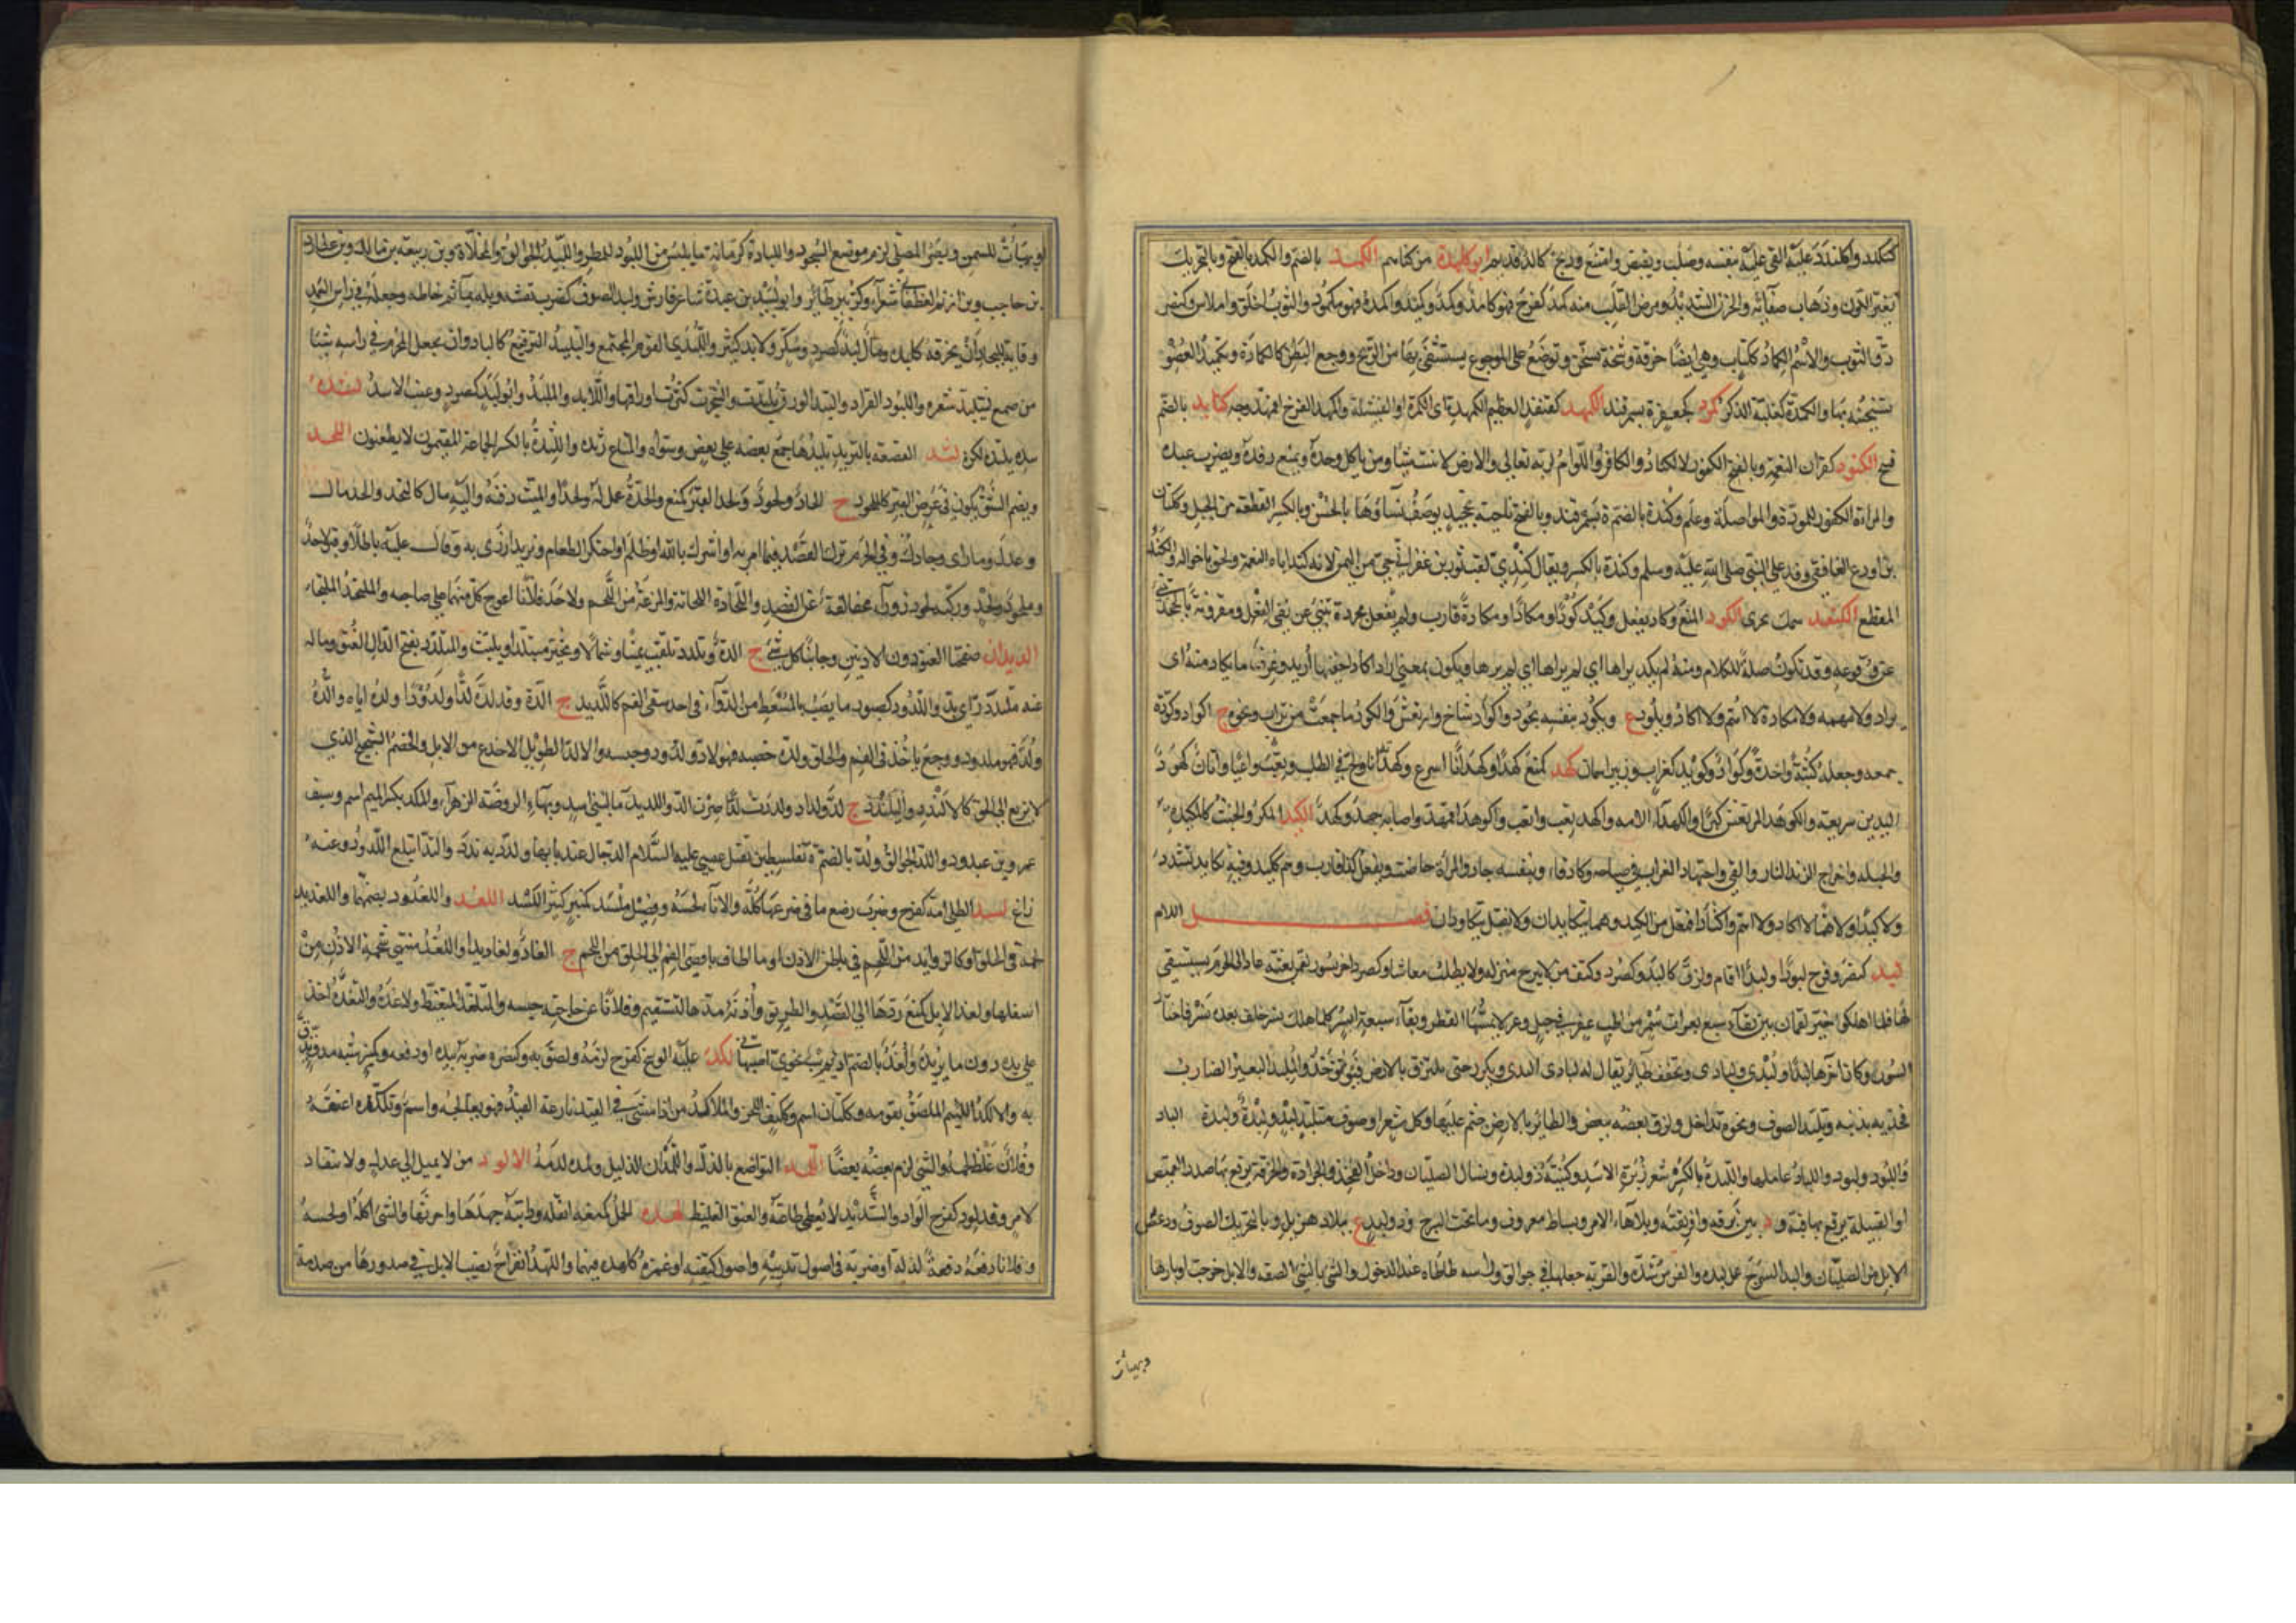 كتكلدد واكلندد عليه القى عليه بنفسه وصلب وتقبض وامتنع وذيخ كالد قديم ابو كلدة من كناهم الكمد بالضم والكمد بالفتح وبالتحريك
تغير اللون وذهاب صفائه والحزن الشديد ومرض القلب منه كمد كفرح فهو كامد وكمد وكميد واكمده فهو مكمود والثوب اخلق واملاس كنصر
دق الثوب والاسم الكماد ككتاب وهي ايضا خرقة وسخة تسخن وتوضع على الموجوع يستشفى بها من الريح ووجع البطن كالكمادة وتكميد العضو
تسخينه بها والكمدة كغلبة الذكر كمرد كجعفر ة بسمرقند الكمهد كقنفذ العظيم الكمهدة اى الكمرة او الفيشلة واكمهد الفرخ اقمهد وجه كنابد بالضم
قبيح الكنود كفران النعمة وبالفتح الكفور كالكناد والكافر واللوام لربه تعالى والارض لا تنبت شيئا ومن ياكل وحده ويمنع رفده ويضرب عبده
والمراة الكفور للمودة والمواصلة وعلم وكندة بالضم ة بسمرقند وبالفتح ناحية بخجند يوصف نساؤها بالحسن وبالكسر القطعة من الجبل وككتان
بن اودع الغافقي وفد على النبي صلى الله عليه وسلم وكندة بالكسر ويقال كندي لقب ثور بن عفير ابي حي من اليمن لانه كند اباه النعمة ولحق باخواله والكند
القطع الكنعد سمك بحرى الكود المنع وكاد يفعل وكيد كودا ومكادا ومكادة قارب ولم يفعل مجردة تنبئ عن نفى الفعل ومقرونة بالجحد تنبئ
عن وقوعه وقد تكون صلة للكلام ومنه لم يكد يراها اي لم يراها اي لم يرها ويكون بمعنى اراد اكاد اخفيها اريد وعرف ما يكاد منه اى
يراد ولا مهمه ولا مكادة لا اهم ولا اكاد ويلود ع ويكود بنفسه يجود واكواد شاخ وارتعش والكود ما جمعت من تراب ونحوه ج اكواد وكوده
جمعه وجعله كثبة واحدة وكواد وكويد كغراب وزبير اسمان كهد كمنع كهدا وكهدانا اسرع وكهدته انا والح في الطلب وتعب واعيا واتان كهود
اليدين سريعة والكوهد المرتعش كبرا والكهداء الامة واكهد تعب واتعب واكوهد اقمهد واصابه جهد وكهد الكيد المكر والخبث كالمكيدة
والحيلة واخراج الزند النار والقيء واجتهاد الغراب في صياحه وكاد قاء وبنفسه جاد والمراة حاضت ويفعل كذا قارب وهم كيكيد وفيه تكايد تشدد
ولا كيدا ولا هما لا اكاد ولا اهم واكتاد افتعل من الكيد وهما يتكايدان ولا تقل يتكاودان فصل اللام
لبد كنصر وفرح لبودا ولبدا اقام ولزق كالبد وكصرد وكتف من لا يبرح منزله ولا يطلب معاشا وكصرد اخر نسور لقمن بعثته عاد الى الحرم يستسقى
لها فلما اهلكوا خير لقمان بين بقاء سبع بعرات سمر من اظب عفر في جبل وعر لا يمسها القطر وبقاء سبعة انسر كلما هلك نسر خلف بعده نسر فاختار
النسور وكان اخرها لبدا ولبدى ولبادى ويخفف طائر يقال له لبادى البدى ويكرر حتى يلتزق بالارض فيؤخذ والملبد البعير الضارب
فخذيه بذنبه وتلبد الصوف ونحوه تداخل ولزق بعضه ببعض والطائر بالارض جثم عليها وكل شعر او صوف متلبد لبد ولبدة ولبدة ج الباد
ولبود والبود واللباد عاملها واللبدة بالكسر شعر زبرة الاسد وكنيته ذو لبدة ونسال الصليان وداخل الفخذ والجرادة والخرقة يرقع بها صدر القميص
او القبيلة يرقع بها قبه ود بين برقة وافريقية وبلاهاء الامر وبساط معروف وما تحت السرج وذو لبد ع ببلاد هذيل وبالتحريك الصوف ودعص
الابل من الصليان والبد السرج عمل لبده والفرس شده والقربة جعلها في جوالق ورأسه طأطأه عند الدخول والشئ بالشئ الصقه والابل خرجت اوبارها
وهيأت
لو تهيأت للسمن وبصر المصلى لزم موضع السجود واللبادة كرمانة ما يلبس من اللبود للمطر واللبيد الجوالق والمخلاة وبن ربيعة بن مالك وبن عطارد
بن حاجب وبن ازنم الغطفانى شعراء وكزبير طائر وابو لبيد بن عبدة شاعر فارس ولبد الصوف كضرب نفشه وبله بماء ثم خاطه وجعله في راس العمد
وقاية للبجاد ان يخرقه كلبده ومال لبد كصرد وسكر ولابد كثير واللبدى القوم المجتمع والتلبيد الترقيع كالالباد وان يجعل المحرم في راسه شيئا
من صمغ ليتلبد شعره واللبود القراد والتبد الورق تلبدت والشجرة كثرت اوراقها واللابد والملبد وابو لبد كصرد وعنب الاسد لتده
بيده يلتده لكزه لثد القصعة بالثريد يلثدها جمع بعضه على بعض وسواه والمتاع رثده واللثدة بالكسر الجماعة المقيمون لا يظعنون اللحد
ويضم الشق يكون في عرض القبر كالملحود ج الحاد ولحود ولحد القبر كمنع والحده عمل له لحدا والميت دفنه واليه مال كالتحد والحد مال
وعدل وماراى وجادل وفي الحرم ترك القصد فيما امر به او اشرك بالله او ظلم او احتكر الطعام وبزيد ازرى به وقال عليه باطلا وقبر لاحد
وملحود ولحد وركية لحود زوراء مخالفة عن القصد واللحادة اللحاتة والمزعة من اللحم ولاحد فلانا اعوج كل منهما على صاحبه والملتحد الملتجأ
اللديدان صفحتا العنق دون الاذنين وجانبا كل شئ ج الدة وتلدد تلفت يمينا وشمالا وتحير متبلدا وتلبث والمتلدد بفتح الدال العنق وماله
عنه ملتد اي بد واللدود كصبور ما يصب بالمسعط من الدواء في احد شقي الفم كاللديد ج الدة وقد لده لدا ولدودا ولده اياه والده
ولد فهو ملدود ووجع ياخذ في الفم والحلق ولده خصمه فهو لاد ولدود وحبسه والالد الطويل الاخدع من الابل والخصم الشحيح الذي
لا يزيغ الى الحق كالالندد واليلندد ج لد ولداد ولددت لدا صرت الد واللديد ماء لبني اسد وبهاء الروضة الزهراء والملد بكسر الميم اسم وسيف
عمرو بن عبدود واللد الجوالق ولد بالضم ة بفلسطين يقتل عيسى عليه السلام الدجال عند بابها ولدد به ندد والتد ابتلع اللدود وعنه
زاغ لسد الطلى امه كفرح وضرب رضع ما في ضرعها كله والاناء لحسه وفصيل ملسد كمنبر كثير اللسد اللغد واللغدود بضمهما واللغديد
لحمة في الحلق او كالزوائد من اللحم في باطن الاذن او ما اطاف باقصى الفم الى الحلق من اللحم ج الغاد ولغاديد واللغد منتهى شحمة الاذن من
اسفلها ولغد الابل كمنع ردها الى القصد والطريق واذنه مدها لتستقيم وفلانا عن حاجته حبسه والمتلغد المتغيظ ولاغده والتغده اخذ
على يده دون ما يريده ولغد بالضم اديب نحوي اصبهانى لكد عليه الوسخ كفرح لزمه ولصق به وكنصره ضربه بيده او دفعه وكمنبر شبه مدق يدق
به والالكد اللئيم الملصق بقومه وككتان اسم وككتف اللحز والملاكد من اذا مشى في القيد نازعه القيد فهو يعالجه واسم وتلكده اعتنقه
وفلان غلظ لحمه والشئ لزم بعضه بعضا اللمد التواضع بالذل واللمدان الذليل ولمده لدمه الالود من لا يميل الى عدل ولا ينقاد
لامر وقد لود كفرح الواد والشديد لا يعطي طاعة والعنق الغليظ لهده الحمل كمنعه اثقله ودابته جهدها واحرثها والشئ اكله او لحسه
وفلانا دفعه دفعة لذله او ضربه في اصول ثدييه واصول كتفيه او غمزه كلهده فيهما واللهد انفراج يصيب الابل في صدورها من صدمة